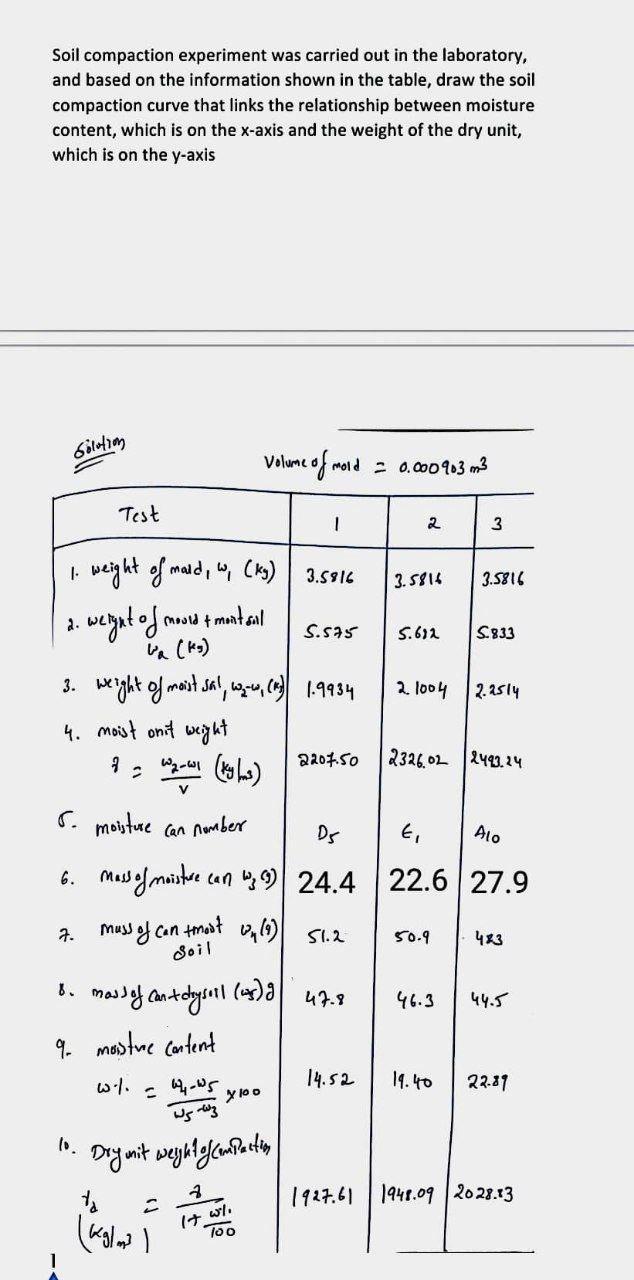 Soil compaction experiment was carried out in the laboratory,
and based on the information shown in the table, draw the soil
compaction curve that links the relationship between moisture
content, which is on the x-axis and the weight of the dry unit,
which is on the y-axis
Solution
Volume of mold = 0.000903 m3
Test 1 2 3
1. weight of mold, w1 (kg) 3.5816 3.5816 3.5816
2. weight of mould + moist soil 5.575 5.833
w2 (kg)
3. weight of moist soil, w2-w1 (kg) 1.9934 2.1004 2.2514
4. moist unit weight
γ = w2-w1 / V (kg/m3) 2207.50 2326.02 2493.24
5. moisture can number D5 E1 A10
6. Mass of moisture can w3 (g) 24.4 22.6 27.9
7. mass of can + moist w4 (g) 51.2 50.9 483
Soil
8. mass of can + dry soil (w5) g 47.8 46.3 44.5
9. moisture Content
w%. = w4-w5 / w5-w3 x100 14.52 19.40 22.89
10. Dry unit weight of Compaction
γd = γ / 1+ w%. / 100 1927.61 1948.09 2028.83
(kg/m3)
1